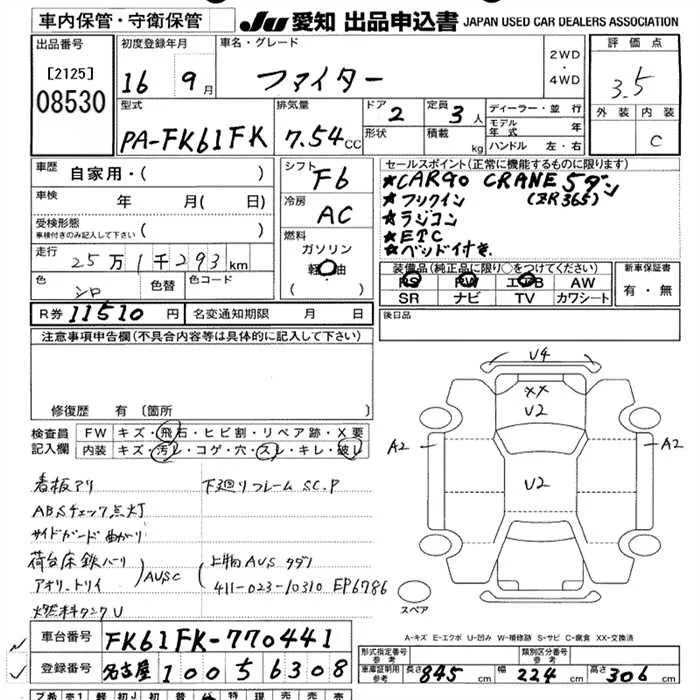 車内保管・守衛保管
JU 愛知 出品申込書 JAPAN USED CAR DEALERS ASSOCIATION
出品番号
[2125]
08530
初度登録年月
16 9月
車名・グレード
ファイター
2WD
・
4WD
評価点
3.5
外装 内装
C
型式
PA-FK61FK
排気量
7.54CC
ドア
2
形状
定員
3人
積載
kg
ディーラー・並行
モデル年式 年
ハンドル 左・右
車歴
自家用・( )
車検
年 月( 日)
受検形態
車検付きのみ記入して下さい
( )
走行
25万1千293km
色
シロ
色替
色コード
シフト
F6
冷房
AC
燃料
ガソリン
軽油
( )
セールスポイント(正常に機能するものに限ります)
★CARGO CRANE 5ダン
★フックイン (ZR365)
★ラジコン
★ETC
★ベッド付き.
装備品(純正品に限り○をつけてください)
PS PW エアB AW
SR ナビ TV カワシート
新車保証書
有・無
R券 11510円
名変通知期限 月 日
後日品
注意事項申告欄(不具合内容等は具体的に記入して下さい)
修復歴 有 〔箇所 〕
検査員記入欄
FW キズ・飛石・ヒビ割・リペア跡・X要
内装 キズ・汚レ・コゲ・穴・スレ・キレ・破レ
看板アリ
下廻りフレーム SC.P
ABSチェック点灯
サイドガード曲がり
荷台床鉄バリ
アオリ.トリイ
AUSC
上物AUS タダン
411-023-10310 EP6786
燃料タンクU
U4
XX
U2
A2
A2
U2
スペア
A-キズ E-エクボ U-凹み W-補修跡 S-サビ C-腐食 XX-交換済
車台番号
FK61FK-770441
登録番号
名古屋 100 56308
形式指定番号
参考
類別区分番号
参考
車庫証明用
参考
長さ 845cm 幅 224cm 高さ 306cm